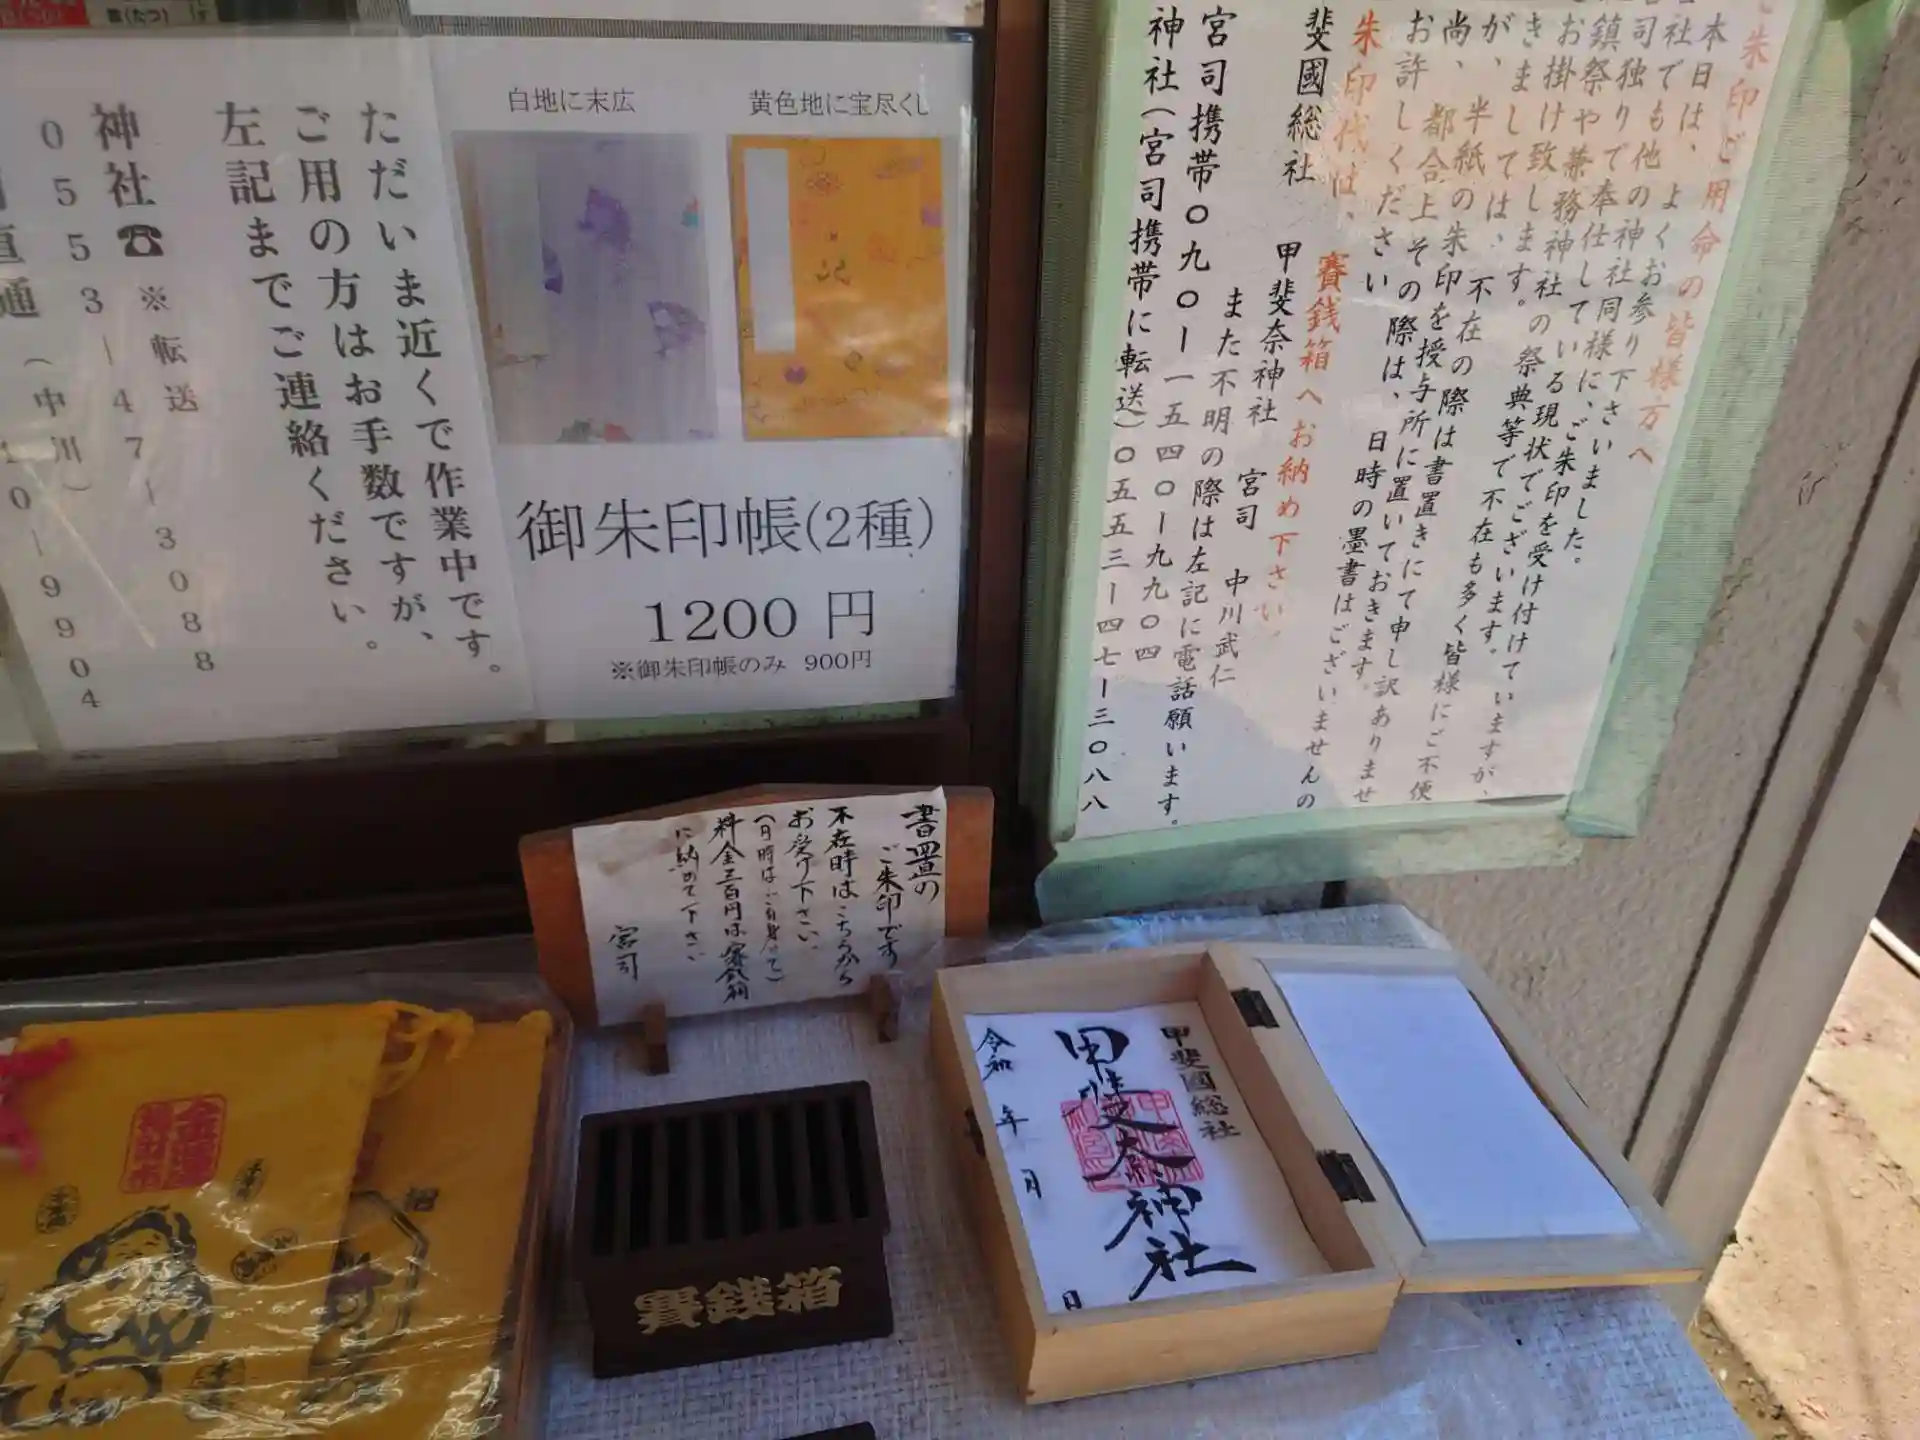 ただいま近くで作業中です。
ご用の方はお手数ですが、
左記までご連絡ください。
神社☎※転送
0553-47-3088
直通(中川)
0-9904
白地に末広
黄色地に宝尽くし
御朱印帳(2種)
1200 円
※御朱印帳のみ 900円
朱印ご用命の皆様方へ
本日は、よくお参り下さいました。
社でも他の神社同様に、ご朱印を受け付けていますが、
司独りで奉仕している現状でございます。
鎮祭や兼務神社の祭典等で不在も多く皆様にご不便
お掛け致します。
きましては、不在の際は書置きにて申し訳ありませ
が、半紙の朱印を授与所に置いておきます。
尚、都合上その際は、日時の墨書はございませんの
お許しください
朱印代は、賽銭箱へお納め下さい。
斐國総社 甲斐奈神社 宮司 中川武仁
また不明の際は左記に電話願います。
宮司携帯〇九〇ー一五四〇ー九九〇四
神社(宮司携帯に転送)〇五五三ー四七ー三〇八八
書置の
ご朱印です
不在時はこちらから
お受け下さい
(日時はご自身にて)
料金三百円は賽銭箱
に納めて下さい
宮司
賽銭箱
甲斐國総社
甲斐奈神社
令和 年 月 日
金運